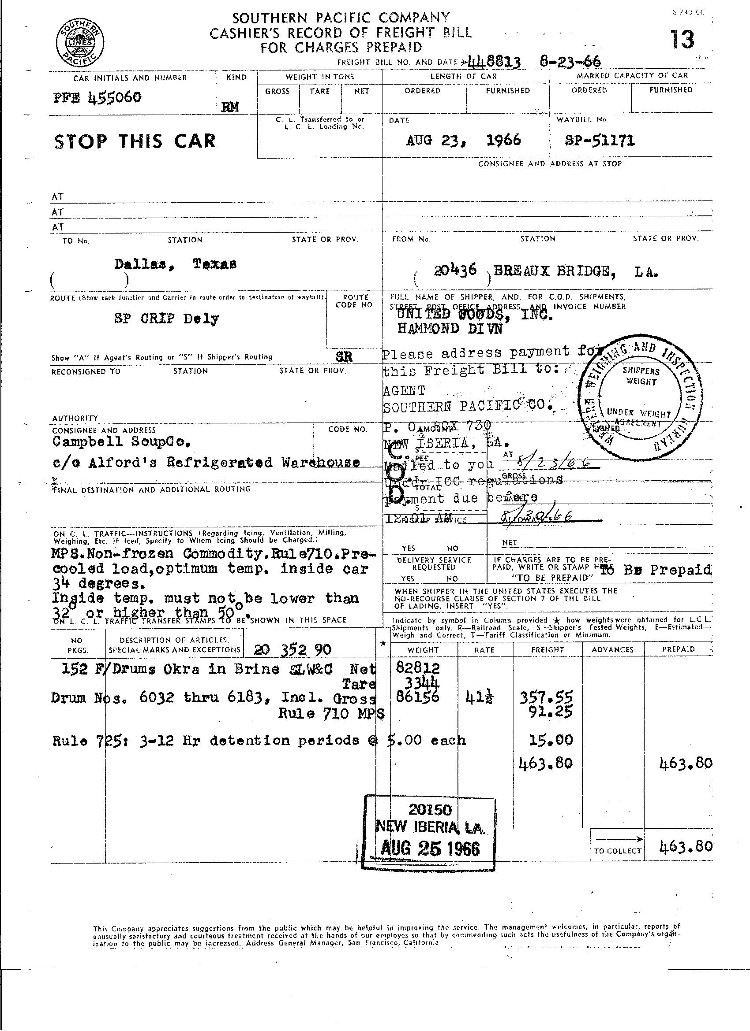 SOUTHERN PACIFIC COMPANY
CASHIER'S RECORD OF FREIGHT BILL
FOR CHARGES PREPAID
13
SOUTHERN PACIFIC LINES
FREIGHT BILL NO. AND DATE 448813 8-23-66
CAR INITIALS AND NUMBER KIND WEIGHT IN TONS LENGTH OF CAR MARKED CAPACITY OF CAR
GROSS TARE NET ORDERED FURNISHED ORDERED FURNISHED
PFE 455060 RM
C. L. Transferred to or
L. C. L. Loading No.
DATE WAYBILL No
STOP THIS CAR
AUG 23, 1966 SP-51171
CONSIGNEE AND ADDRESS AT STOP
AT
AT
AT
TO No. STATION STATE OR PROV. FROM No. STATION STATE OR PROV.
Dallas, Texas
( )
( 20436 ) BREAUX BRIDGE, LA.
ROUTE (Show each Junction and Carrier in route order to destination of waybill) ROUTE CODE NO
FULL NAME OF SHIPPER, AND, FOR C.O.D. SHIPMENTS,
STREET, POST OFFICE ADDRESS, AND INVOICE NUMBER
SP GRIP Dely
UNITED FOODS, INC.
HAMMOND DIVN
Show "A" if Agent's Routing or "S" if Shipper's Routing SR
RECONSIGNED TO STATION STATE OR PROV.
Please address payment for
this Freight Bill to:
AGENT
SOUTHERN PACIFIC CO.
P. O. BOX 730
NEW IBERIA, LA.
WESTERN WEIGHING AND INSPECTION BUREAU
SHIPPERS
WEIGHT
UNDER WEIGHT
AGREEMENT
AUTHORITY
CONSIGNEE AND ADDRESS CODE NO.
Campbell SoupCo.
c/o Alford's Refrigerated Warehouse
Mailed to you 8/23/66
Under ICC regulations
Payment due before
12:01 AM 8/30/66
FINAL DESTINATION AND ADDITIONAL ROUTING
ON C. L. TRAFFIC—INSTRUCTIONS (Regarding Icing, Ventilation, Milling,
Weighing, Etc. If Iced, Specify to Whom Icing Should be Charged.)
MPS.Non-frozen Commodity.Rule710.Pre-
cooled load,optimum temp. inside car
34 degrees.
Inside temp. must not be lower than
32° or higher than 50°
ON L. C. L. TRAFFIC TRANSFER STAMPS TO BE SHOWN IN THIS SPACE
YES NO NET
DELIVERY SERVICE
REQUESTED
YES NO
IF CHARGES ARE TO BE PRE-
PAID, WRITE OR STAMP HERE
"TO BE PREPAID"
To Be Prepaid
WHEN SHIPPER IN THE UNITED STATES EXECUTES THE
NO-RECOURSE CLAUSE OF SECTION 7 OF THE BILL
OF LADING, INSERT "YES".
Indicate by symbol in Column provided ★ how weights were obtained for L.C.L.
Shipments only. R—Railroad Scale, S—Shipper's Tested Weights, E—Estimated—
Weigh and Correct, T—Tariff Classification or Minimum.
NO PKGS. DESCRIPTION OF ARTICLES, SPECIAL MARKS AND EXCEPTIONS 20 352 90 * WEIGHT RATE FREIGHT ADVANCES PREPAID
152 F/Drums Okra in Brine SLW&C Net 82812
Tare 3344
Drum Nos. 6032 thru 6183, Incl. Gross 86156 41½ 357.55
Rule 710 MPS 91.25
Rule 725: 3-12 Hr detention periods @ 5.00 each 15.00
463.80 463.80
20150
NEW IBERIA, LA.
AUG 25 1966
TO COLLECT 463.80
This Company appreciates suggestions from the public which may be helpful in improving the service. The management welcomes, in particular, reports of
unusually satisfactory and courteous treatment received at the hands of our employes so that by commending such acts the usefulness of the Company's organ-
ization to the public may be increased. Address General Manager, San Francisco, California